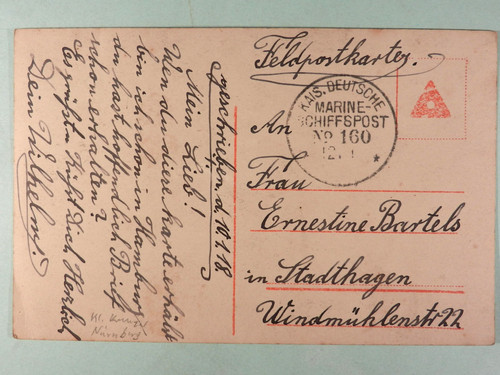 Feldpostkarte.
KAIS. DEUTSCHE
MARINE-
SCHIFFSPOST
No 160
12.1
*
An
Frau
Ernestine Bartels
in Stadthagen
Windmühlenstr 22
geschrieben, d. 10.1.18
Mein Lieb!
Wen du diese Karte erhälst
bin ich schon in Hamburg
du hast hoffendlich Brief
schon erhalten?
Es grüßt u. küßt Dich Herzlich
Dein Wilhelm.
Kl. Kreuzer
Nürnberg